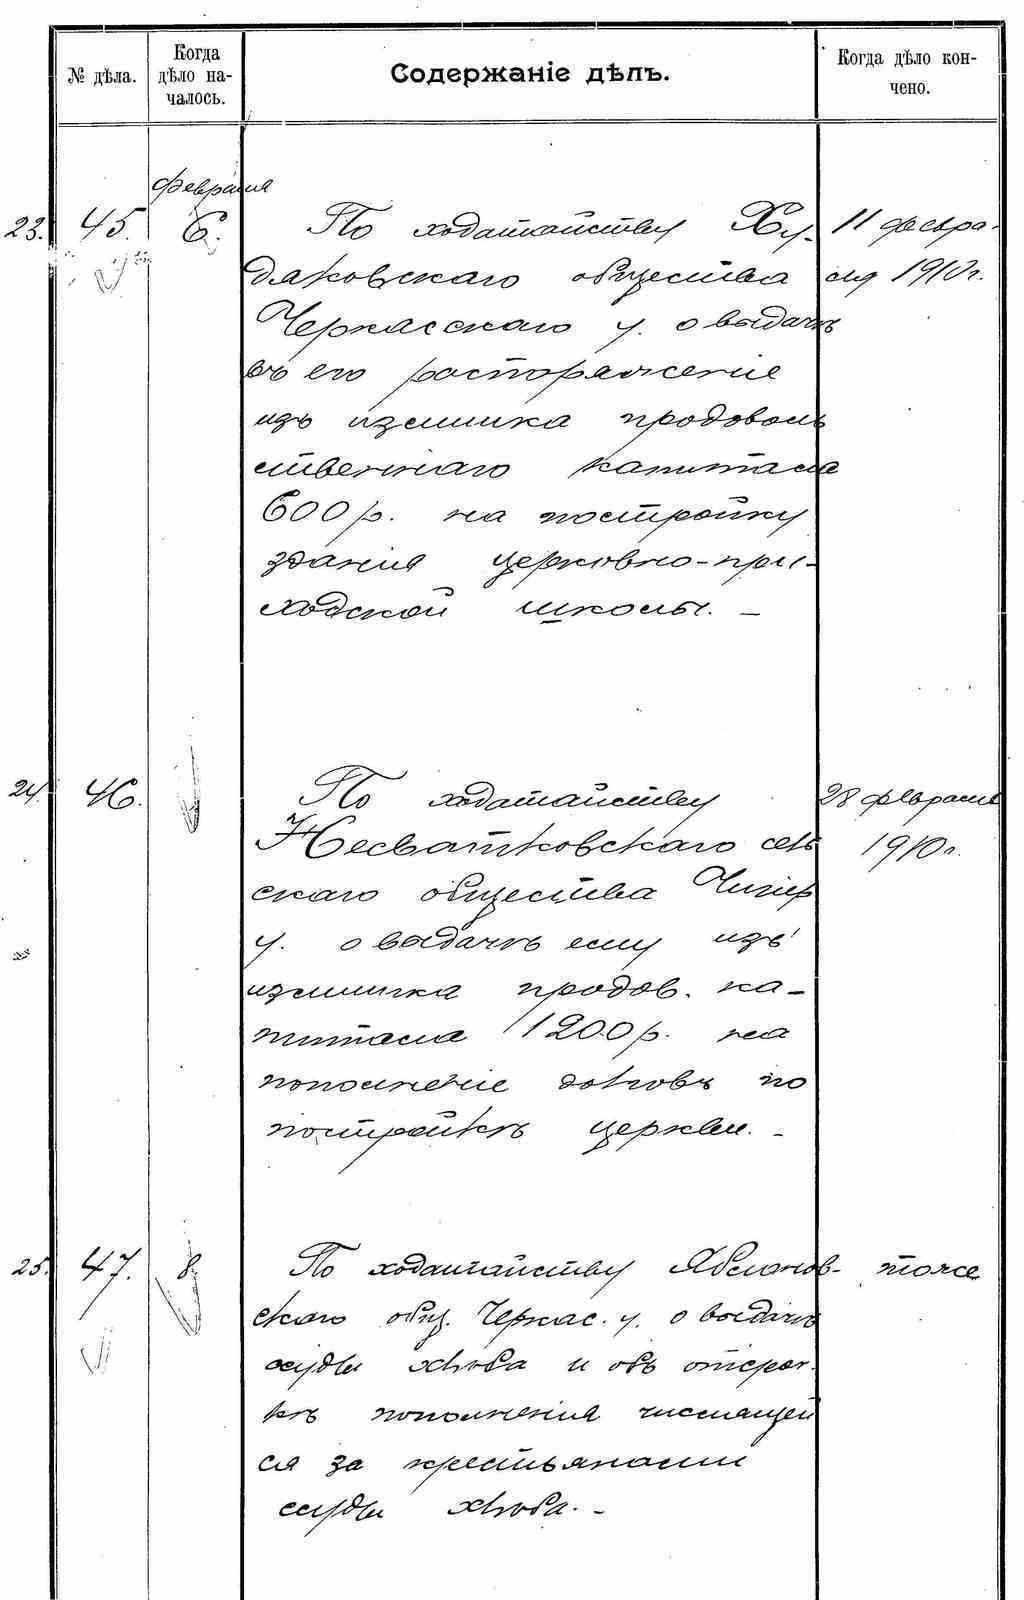 № дѣла.
Когда
дѣло на-
чалось.
Содержаніе дѣлъ.
Когда дѣло кон-
чено.
февраля
23. 45. 6. По ходатайству Ху- 11 февра-
дяковскаго общества ля 1910 г.
Черкасскаго у. о выдачѣ
въ его распоряженіе
изъ излишка продоволь
ственнаго капитала
600 р. на постройку
зданія церковно-при-
ходской школы. –
24. 46. По ходатайству 28 февраля
Несватковскаго сель 1910 г.
скаго общества Чигир
у. о выдачѣ ему изъ
излишка продов. ка-
питала 1200 р. на
пополненіе долговъ по
постройкѣ церкви. –
25. 47. 8. По ходатайству Яблонов- тоже
скаго общ. Черкас. у. о выдачѣ
ссуды хлѣба и объ отсроч-
кѣ пополненія числящей
ся за крестьянами
ссуды хлѣба. –